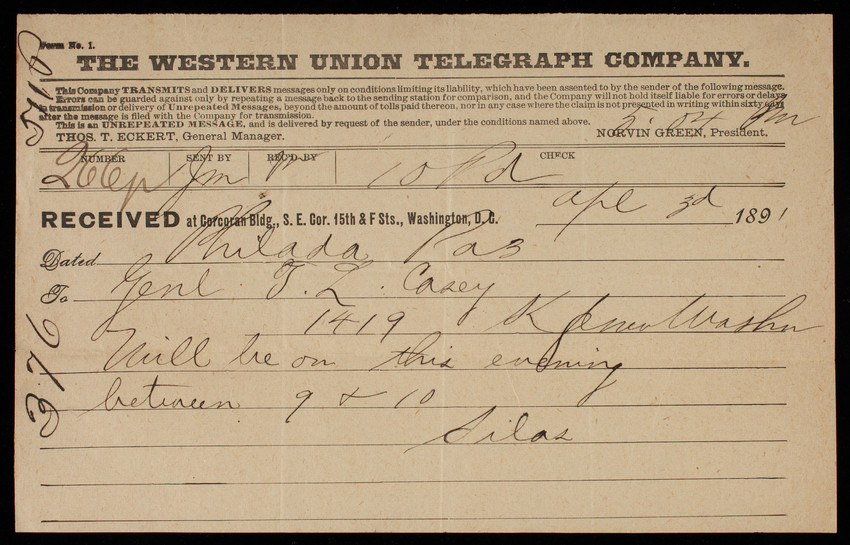 Form No. 1.
THE WESTERN UNION TELEGRAPH COMPANY.
This Company TRANSMITS and DELIVERS messages only on conditions limiting its liability, which have been assented to by the sender of the following message.
Errors can be guarded against only by repeating a message back to the sending station for comparison, and the Company will not hold itself liable for errors or delays
in transmission or delivery of Unrepeated Messages, beyond the amount of tolls paid thereon, nor in any case where the claim is not presented in writing within sixty days
after the message is filed with the Company for transmission.
This is an UNREPEATED MESSAGE, and is delivered by request of the sender, under the conditions named above.
5:04 Pm
THOS. T. ECKERT, General Manager. NORVIN GREEN, President.
NUMBER SENT BY REC'D BY CHECK
266p Jm 10 Pd
RECEIVED at Corcoran Bldg., S. E. Cor. 15th & F Sts., Washington, D. C. Apl 3d 1891
Dated Philada Pa 3
To Genl. T. L. Casey
1419 K Washn
Will be on this evening
between 9 & 10
Silas
376